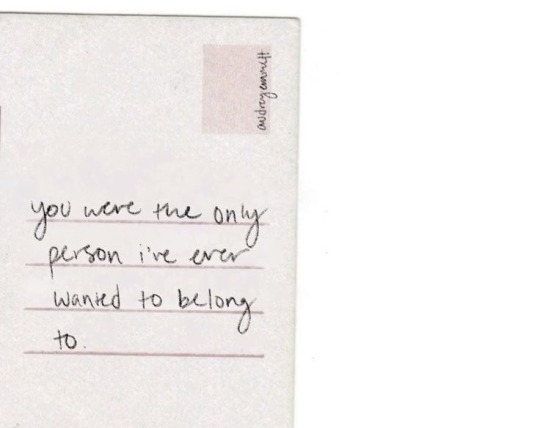 audrey emmett
you were the only
person i've ever
wanted to belong
to.